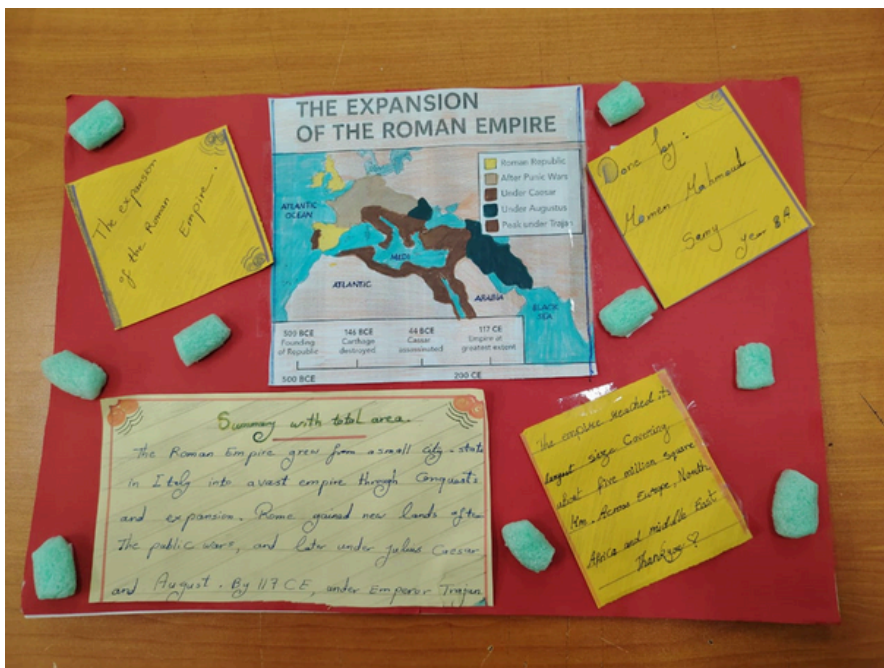 THE EXPANSION
OF THE ROMAN EMPIRE
Roman Republic
After Punic Wars
Under Caesar
Under Augustus
Peak under Trajan
ATLANTIC
OCEAN
MEDI
ATLANTIC
ARABIA
BLACK
SEA
500 BCE
Founding
of Republic
146 BCE
Carthage
destroyed
44 BCE
Caesar
assassinated
117 CE
Empire at
greatest extent
500 BCE
200 CE
The expansion
of the Roman
Empire.
Done by:
Momen Mahmoud
Samy
year 8A
Summary with total area.
The Roman Empire grew from a small city-state
in Italy into a vast empire through Conquests
and expansion. Rome gained new lands after
The public wars, and later under Julius Caesar
and August. By 117 CE, under Emperor Trajan
The empire reached its
largest size Covering
about five million square
Km. Across Europe, North
Africa and middle East
Thank you